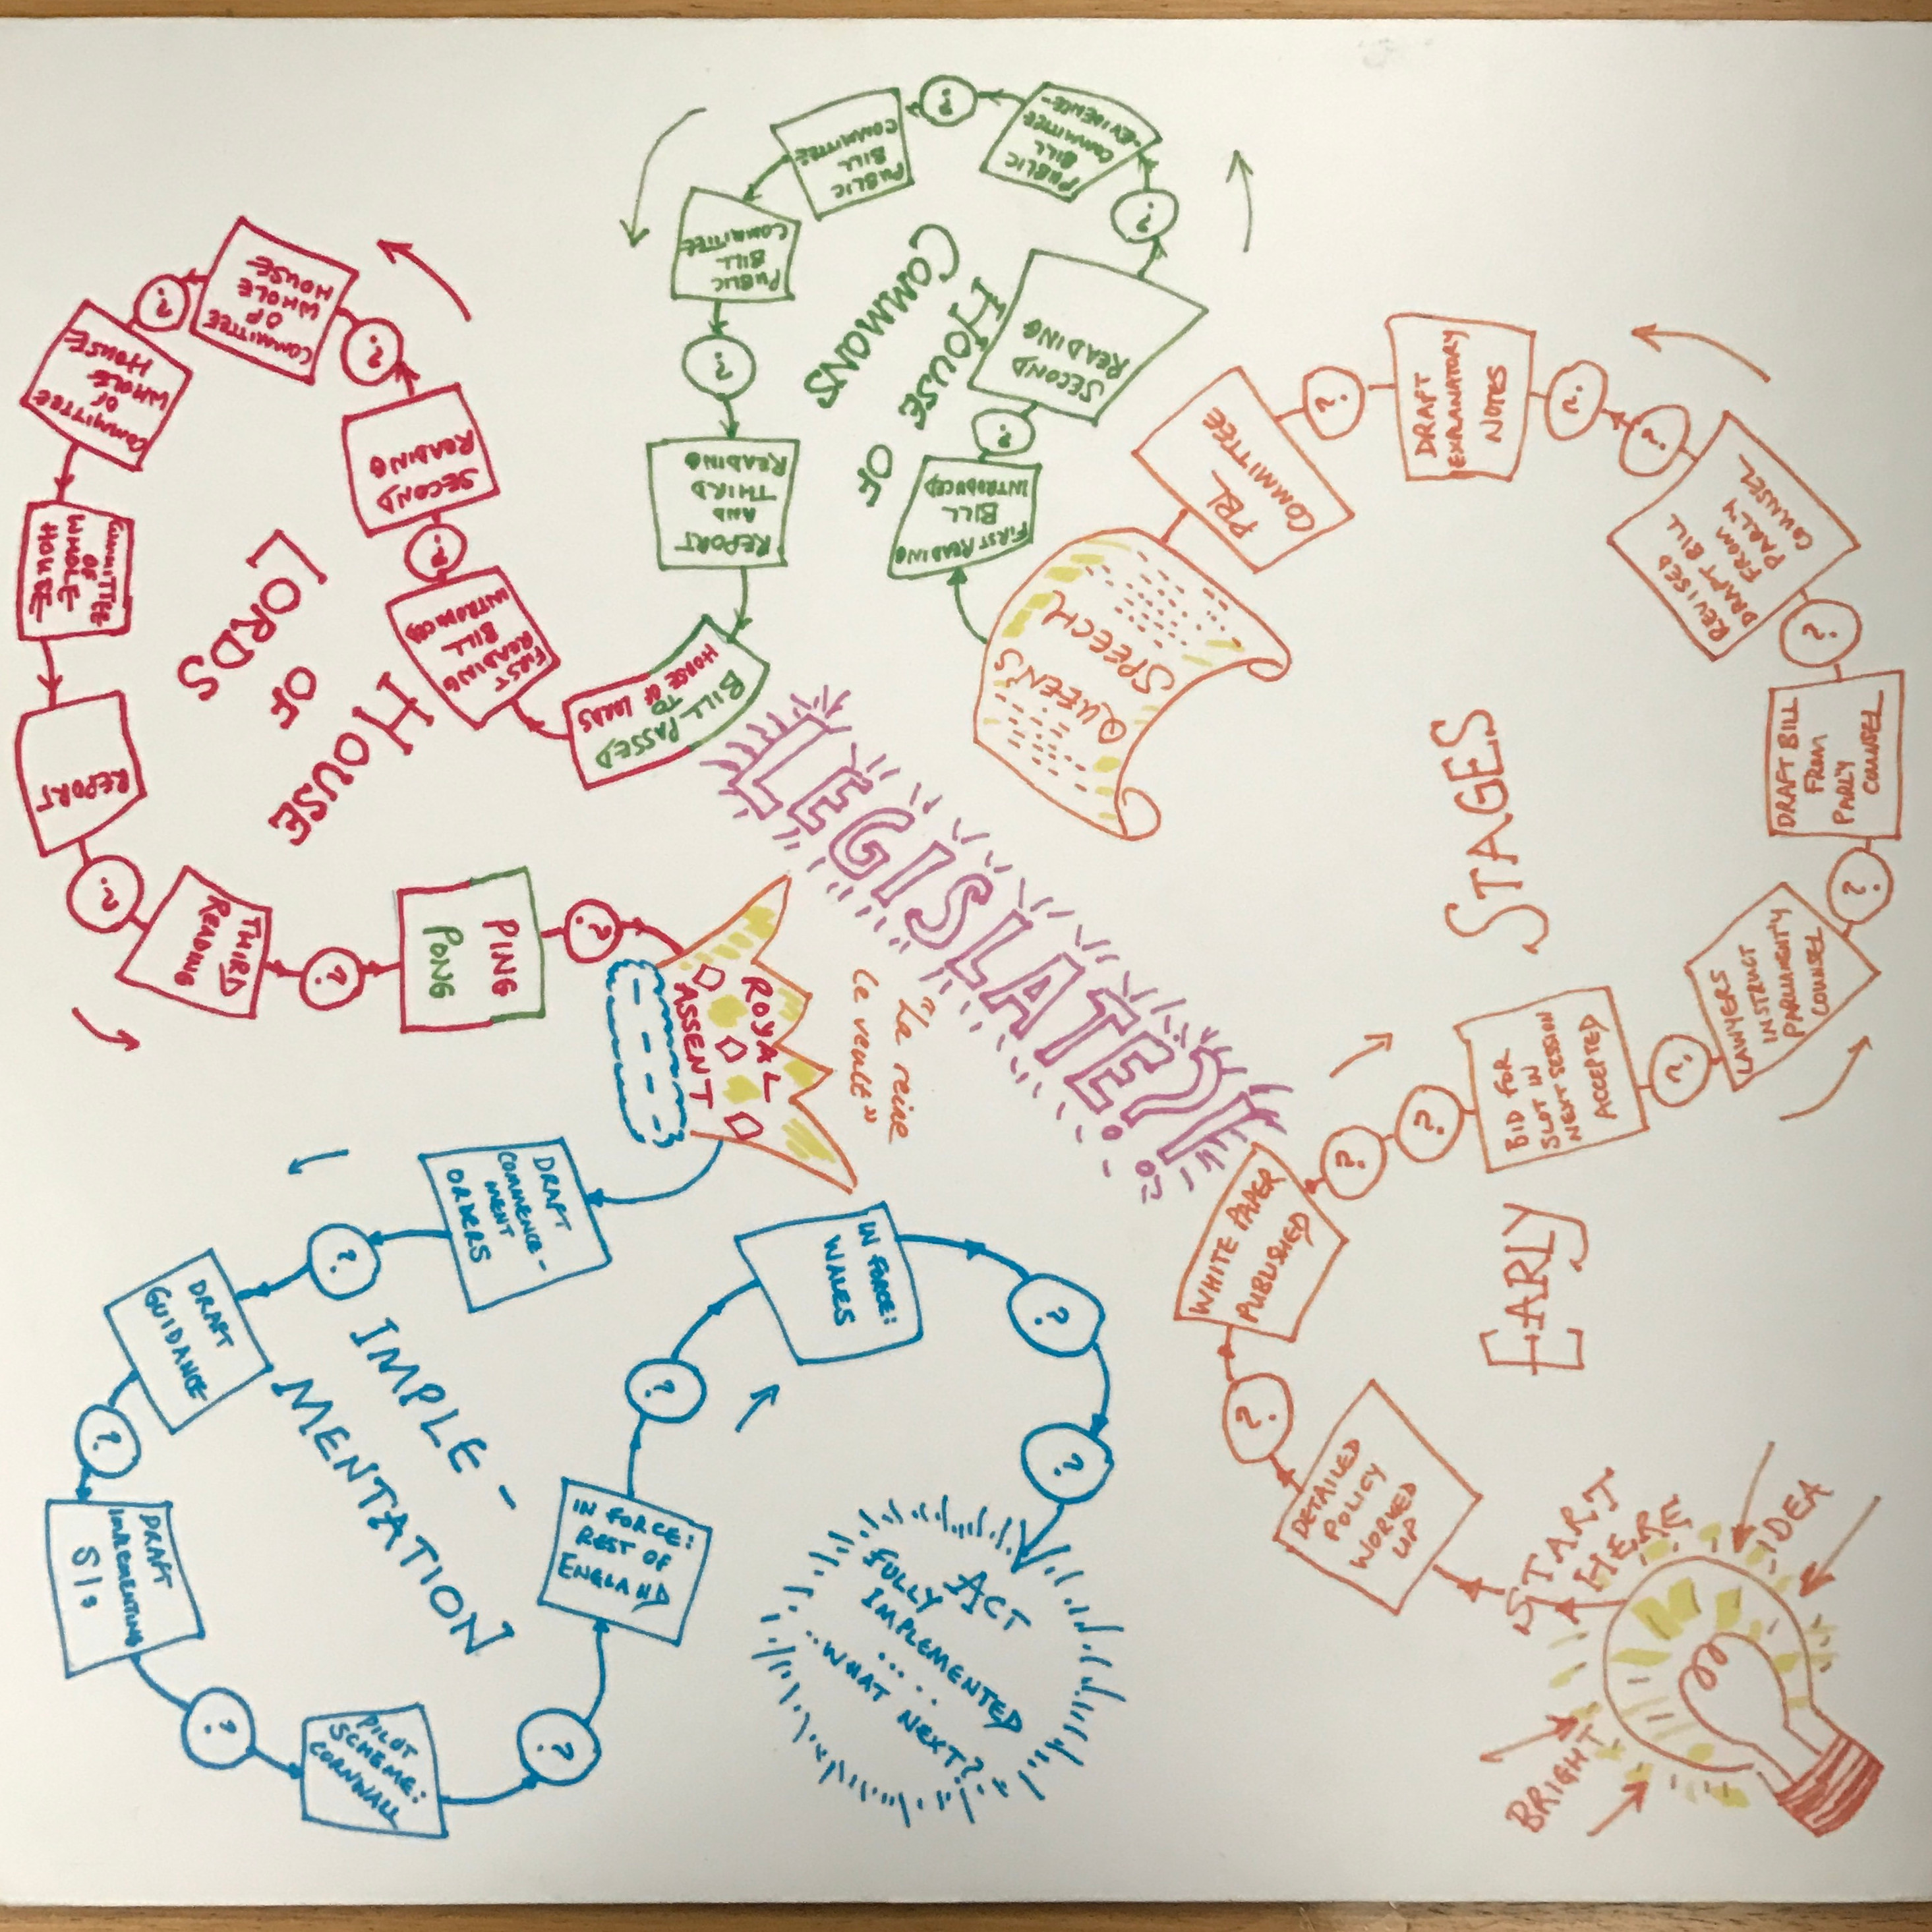 LEGISLATE?!
START
HERE
BRIGHT
IDEA
EARLY
STAGES
DETAILED
POLICY
WORKED
UP
?
WHITE PAPER
PUBLISHED
?
?
BID FOR
SLOT IN
NEXT SESSION
ACCEPTED
?
LAWYERS
INSTRUCT
PARLIAMENTY
COUNSEL
?
DRAFT BILL
FROM
PARLY
COUNSEL
?
REVISED
DRAFT BILL
FROM
PARLY
COUNSEL
?
?
DRAFT
EXPLANATORY
NOTES
?
PBL
COMMITTEE
QUEEN'S
SPEECH
HOUSE
OF
COMMONS
FIRST READING
BILL
INTRODUCED
?
SECOND
READING
?
PUBLIC
BILL
COMMITTEE
-EVIDENCE-
?
PUBLIC
BILL
COMMITTEE
PUBLIC
BILL
COMMITTEE
?
REPORT
AND
THIRD
READING
BILL PASSED
TO
HOUSE OF LORDS
HOUSE
OF
LORDS
FIRST
READING
BILL
INTRODUCED
?
SECOND
READING
?
COMMITTEE
OF
WHOLE
HOUSE
?
COMMITTEE
OF
WHOLE
HOUSE
COMMITTEE
OF
WHOLE
HOUSE
REPORT
?
THIRD
READING
?
PING
PONG
?
ROYAL
ASSENT
"La reine
le veult"
IMPLE-
MENTATION
DRAFT
COMMENCE-
MENT
ORDERS
?
DRAFT
GUIDANCE
?
DRAFT
IMPLEMENTING
SIs
?
PILOT
SCHEME:
CORNWALL
?
IN FORCE:
REST OF
ENGLAND
?
IN FORCE:
WALES
?
?
ACT
FULLY
IMPLEMENTED
.....
..WHAT NEXT?